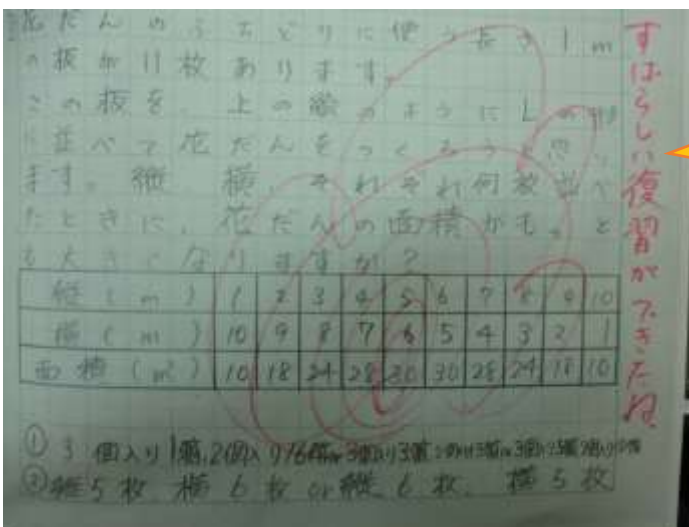 花だんのふちどりに使う長さ1m
の板が11枚あります。
この板を、上の絵のようにLの形
に並べて花だんをつくろうと思い
ます。縦、横、それぞれ何枚並べ
たときに、花だんの面積がもっと
も大きくなりますか?
縦(m) 1 2 3 4 5 6 7 8 9 10
横(m) 10 9 8 7 6 5 4 3 2 1
面積(m²) 10 18 24 28 30 30 28 24 18 10
① 3個入り1箱、2個入り
②縦5枚 横6枚 or 縦6枚、横5枚
すばらしい復習ができたね